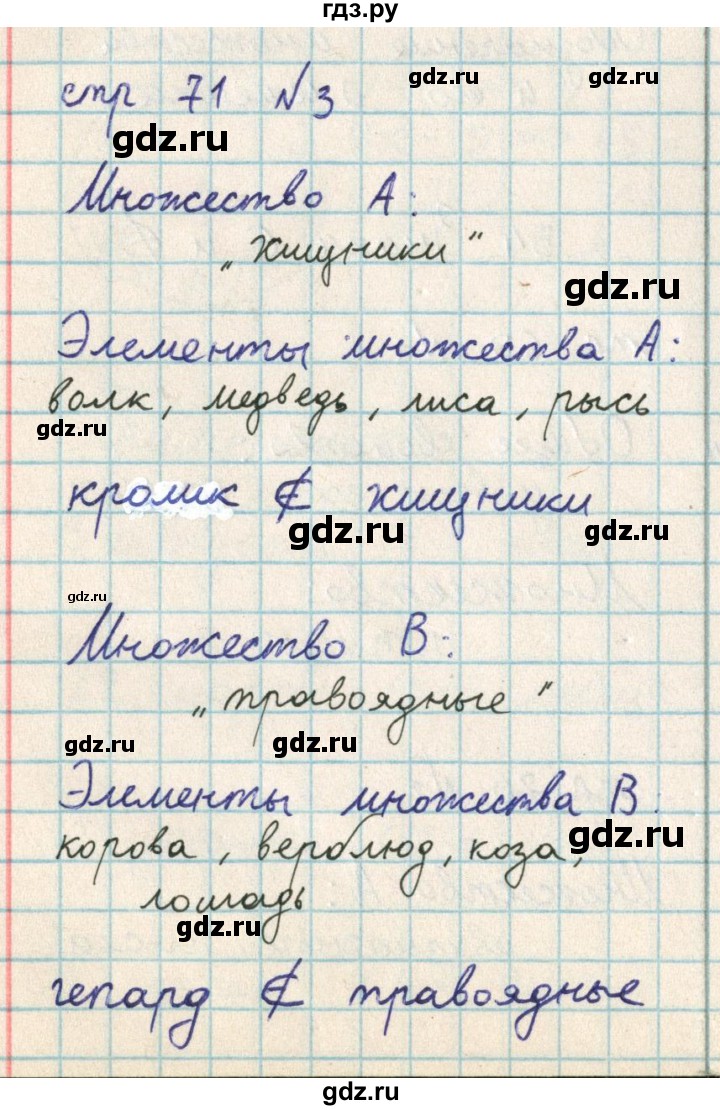 гдз.ру
стр 71 №3
gdz.ru
gdz.ru
Множество А:
„хищники"
gdz.ru
Элементы множества А:
волк, медведь, лиса, рысь
gdz.ru
кролик ⊄ хищники
gdz.ru
gdz.ru
gdz.ru
Множество В:
„травоядные"
gdz.ru
gdz.ru
Элементы множества В:
корова, верблюд, коза,
gdz.ru
лошадь
gdz.ru
гепард ⊄ травоядные
gdz.ru